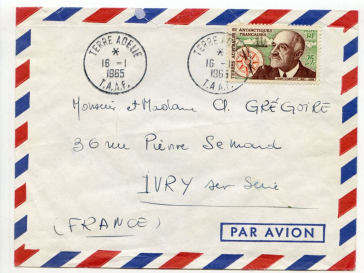 TERRE ADELIE
16 -1
1965
T.A.A.F.
TERRE ADELIE
16 -1
1965
T.A.A.F.
TERRES AUSTRALES ET
ANTARCTIQUES
FRANÇAISES
RF
25
Monsieur et Madame A. GRÉGOIRE
36 rue Pierre Semard
IVRY sur Seine
(FRANCE)
PAR AVION